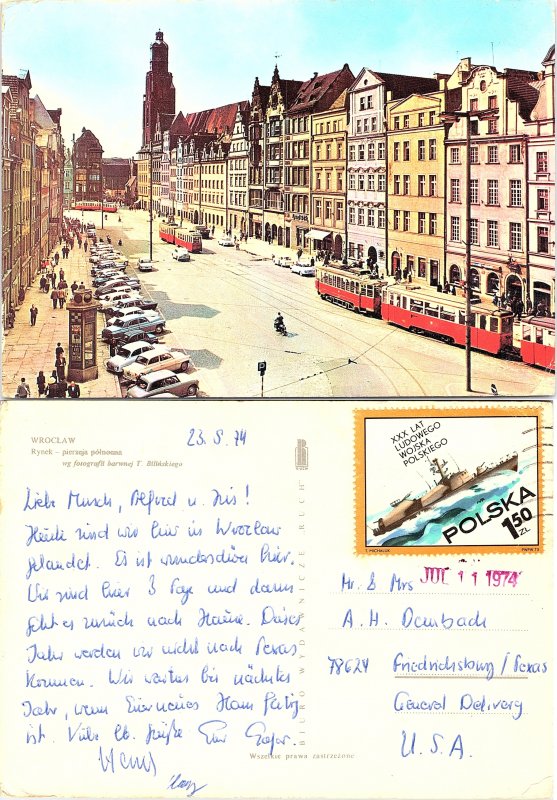 WROCŁAW
Rynek – pierzeja północna
wg fotografii barwnej T. Bilińskiego
23. 8. 74
Liebe Musch, Alfred u. Iris!
Heute sind wir hier in Wroclaw
gelandet. Es ist wunderschön hier.
Wir sind hier 3 Tage und dann
geht es zurück nach Hause. Dieses
Jahr werden wir nicht nach Texas
kommen. Wir warten bis nächstes
Jahr, wenn Euer neues Haus fertig
ist. Viele lb. Grüße Eur
BIURO WYDAWNICZE RUCH
Wszelkie prawa zastrzeżone
XXX LAT
LUDOWEGO
WOJSKA
POLSKIEGO
POLSKA
1.50
ZŁ
T. MICHALUK
PWPW 73
JUL 11 1974
Mr. & Mrs
A. H. Dombach
78624 Friedrichsburg / Texas
General Delivery
U. S. A.